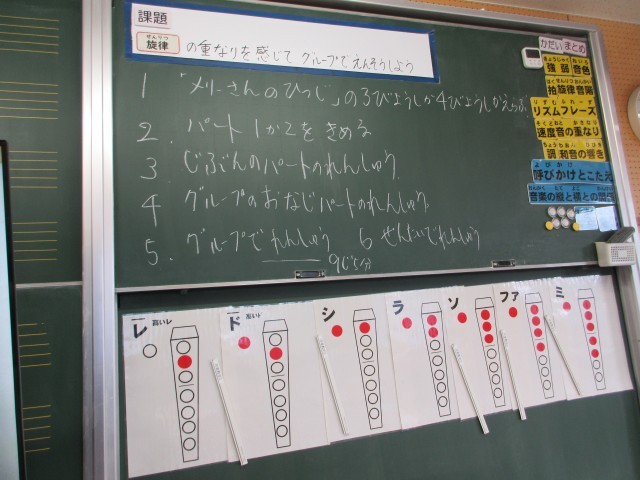 課題
せんりつ
旋律 の重なりを感じて グループでえんそうしよう
1 「メリーさんのひつじ」の3びょうしか4びょうしかえらぶ
2. パート1か2をきめる
3 じぶんのパートのれんしゅう
4 グループのおなじパートのれんしゅう
5. グループでれんしゅう 6 ぜんたいでれんしゅう
9じ5分
かだい
まとめ
強弱
音色
拍
旋律
音階
リズム
フレーズ
速度
音の重なり
調
和音の響き
呼びかけとこたえ
音楽の縦と横との関係
レ 高いレ
ド 高いド
シ
ラ
ソ
ファ
ミ